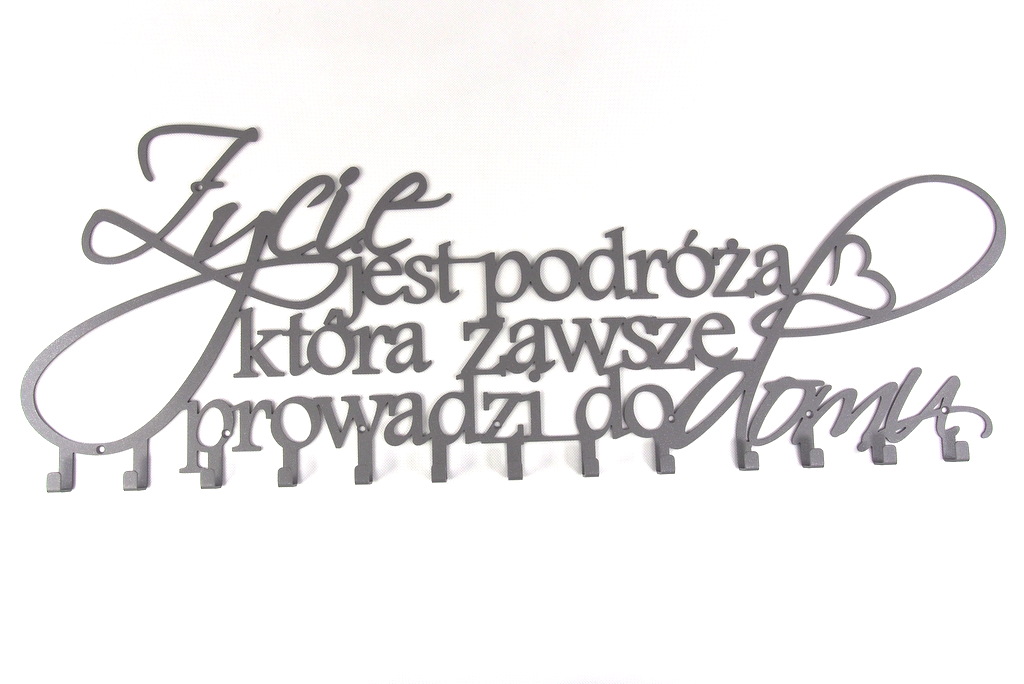 Życie
jest podróżą
która zawsze
prowadzi do domu